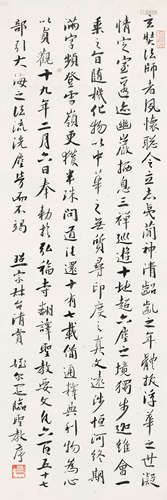 玄奘法師者夙懷聰令立志夷簡神清齠齔之年體拔浮華之世凝
情定室匿迹幽巖栖息三禪巡遊十地超六塵之境獨步迦維會一
乘之旨隨機化物以中華之無質尋印度之真文遠涉恒河終期
滿字頻登雪嶺更獲半珠問道往還十有七載備通釋典利物為心
以貞觀十九年二月六日奉勅於弘福寺翻譯聖教要文凡六百五十七
部引大海之法流洗塵勞而不竭 清賞 臨聖教序